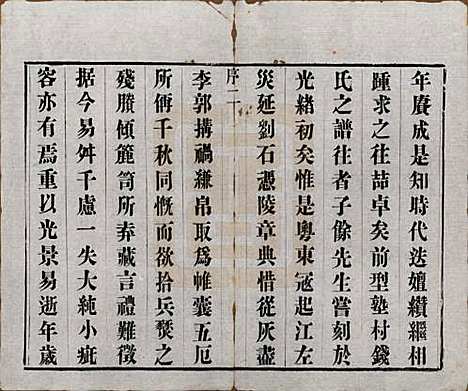 年賡成是知時代迭嬗纘繼相
踵求之往喆卓矣前型塾村錢
氏之譜往者子餘先生嘗刻於
光緒初矣惟是粵東冠起江左
災延劉石憑陵章典惜從灰盡
序二
李郭搆禍縑帛取爲帷囊五厄
所傳千秋同慨而欲拾兵燹之
殘賸傾簏笥所弆藏言禮難徵
据今易舛千慮一失大純小疵
容亦有焉重以光景易逝年歲